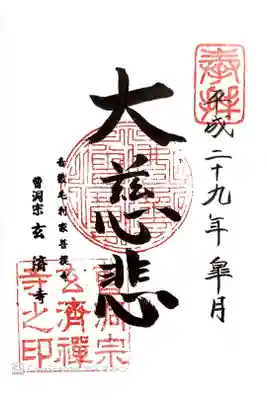 奉拝
平成二十九年皐月
大慈悲
吉敷毛利家菩提寺
曹洞宗 玄済寺
曹洞宗
玄齊禪
寺之印